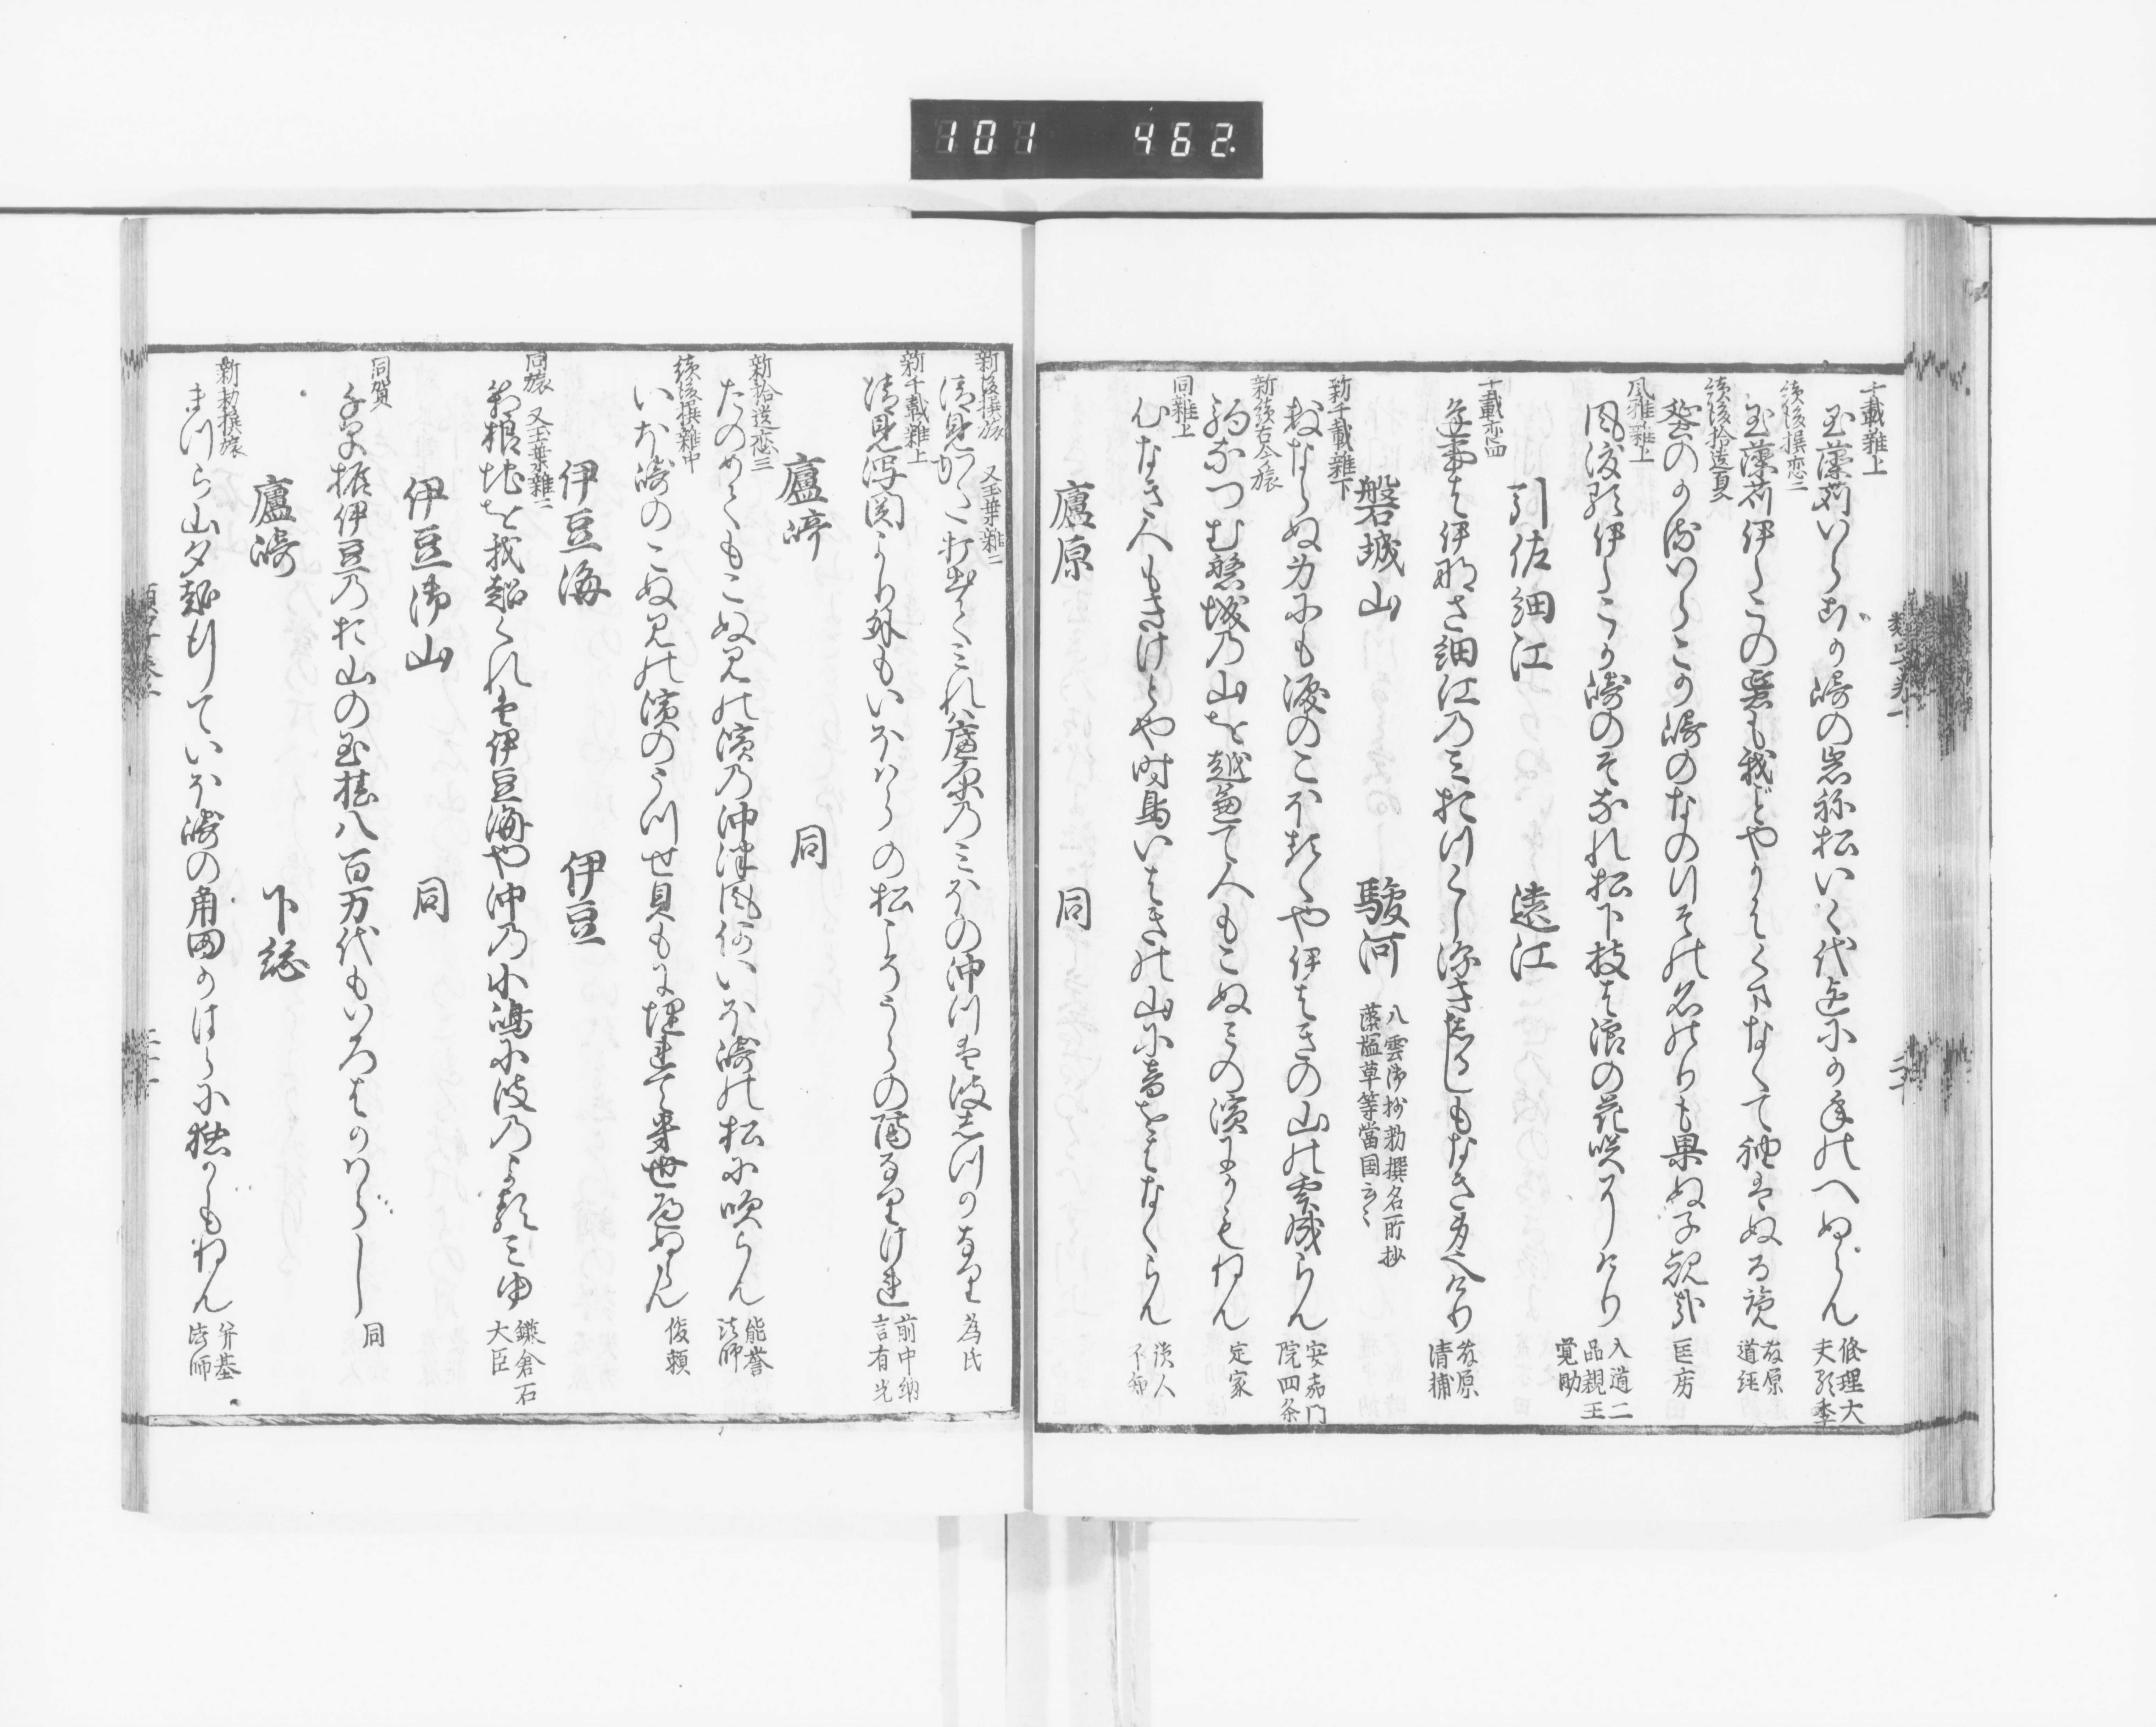 101 462
千載雑上
玉藻苅いらこか崎の岩祢松いく代迄にか年のへぬらん 修理大夫顕季
続後撰恋二
玉藻苅伊らこの蜑も我ことやかはく下なくて袖はぬる覧 藤原道経
続後拾遺夏
のかるいらこか崎のなのりその名のりも果ぬ子規哉 匡房
風雅雑上
風渡る伊らこか崎のそなれ松下枝は浪の花咲にけり 入道二品親王覚助
引佐細江 遠江
千載恋四
逢事は伊那さ細江のみおつくし深きしるしもなき身也けり 藤原清輔
磐城山 駿河 八雲御抄勅撰名所抄藻塩草等當国云々
新千載雑下
数ならぬ為にも涙のこほるゝや伊はきの山の雲成らん 安嘉門院四条
新続古今旅
なつむ磐城の山を越兼て人もこぬみの濱にかもねん 定家
同雑上
心なき人もきけとや時鳥いはきの山に音をはなくらん 読人不知
廬原 同
新後撰旅 又玉葉雑二
清見かた打出てみれは廬原のみほの沖つは波しつかなり 為氏
新千載雑上
清見潟関より外もいほはらの松こそうらの隔なりけれ 前中納言有光
廬崎 同
新拾遺恋三
たのめくもこぬみの濱の沖津風何いほ崎の松に吹らん 能誉法師
続後撰雑中
いほ崎のこぬみの濱のうつせ貝もに埋れて幾世へぬらん 俊頼
伊豆海 伊豆
同旅 又玉葉雑二
箱根地を我越くれは伊豆海や沖の小嶋に波のよるみゆ 鎌倉右大臣
伊豆御山 同
同賀
千早振伊豆のお山の玉椿八百万代もいろはかはらし 同
廬崎 下総
新勅撰旅
まつち山夕越行ていほ崎の角田かはらに独かもねん 弁基法師